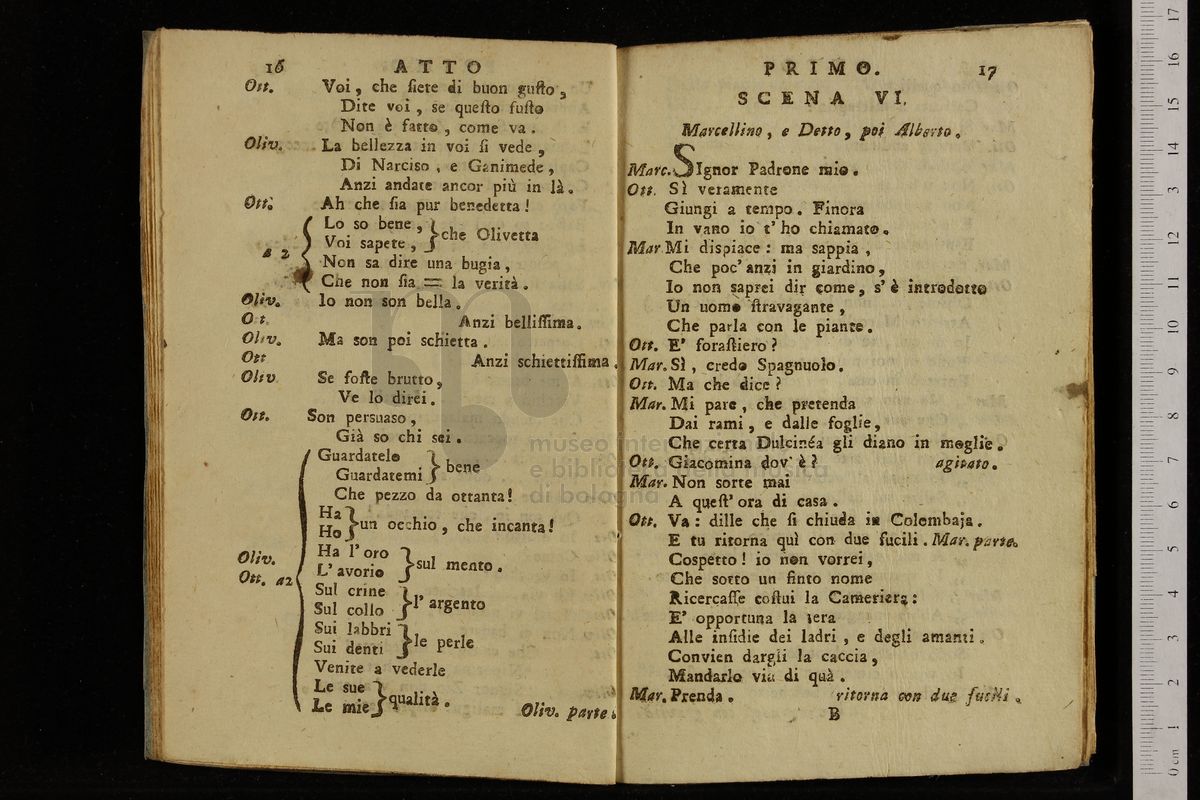 16 ATTO
Ott. Voi, che ſiete di buon guſto,
Dite voi, se queſto fuſto
Non è fatto, come va.
Oliv. La bellezza in voi ſi vede,
Di Narciso, e Ganimede,
Anzi andate ancor più in là.
Ott. Ah che ſia pur benedetta!
Lo so bene,
Voi sapete, } che Olivetta
a 2
Non sa dire una bugia,
Che non ſia = la verità.
Oliv. Io non son bella.
Ot. Anzi belliſſima.
Oliv. Ma son poi schietta.
Ott Anzi schiettiſſima.
Oliv Se foſte brutto,
Ve lo direi.
Ott. Son persuaso,
Già so chi sei.
Guardatelo
Guardatemi } bene
Che pezzo da ottanta!
Ha
Ho } un occhio, che incanta!
Oliv.
Ott. a2
Ha l'oro
L'avorio } sul mento.
Sul crine
Sul collo } l'argento
Sui labbri
Sui denti } le perle
Venite a vederle
Le sue
Le mie } qualità.
Oliv. parte.
PRIMO. 17
SCENA VI.
Marcellino, e Detto, poi Alberto.
Marc. SIgnor Padrone mio.
Ott. Sì veramente
Giungi a tempo. Finora
In vano io t'ho chiamato.
Mar. Mi dispiace: ma sappia,
Che poc'anzi in giardino,
Io non saprei dir come, s'è introdotto
Un uomo ſtravagante,
Che parla con le piante.
Ott. E' foraſtiero?
Mar. Sì, credo Spagnuolo.
Ott. Ma che dice?
Mar. Mi pare, che pretenda
Dai rami, e dalle foglie,
Che certa Dulcinéa gli diano in moglie.
Ott. Giacomina dov'è? agitato.
Mar. Non sorte mai
A queſt'ora di casa.
Ott. Va: dille che ſi chiuda in Colombaja.
E tu ritorna quì con due fucili. Mar. parte.
Cospetto! io non vorrei,
Che sotto un finto nome
Ricercaſſe coſtui la Cameriera:
E' opportuna la sera
Alle inſidie dei ladri, e degli amanti.
Convien dargli la caccia,
Mandarlo via di quà.
Mar. Prenda. ritorna con due fucili.
B
museo internazionale
e biblioteca della musica
di bologna
0 cm 1 2 3 4 5 6 7 8 9 10 11 12 13 14 15 16 17